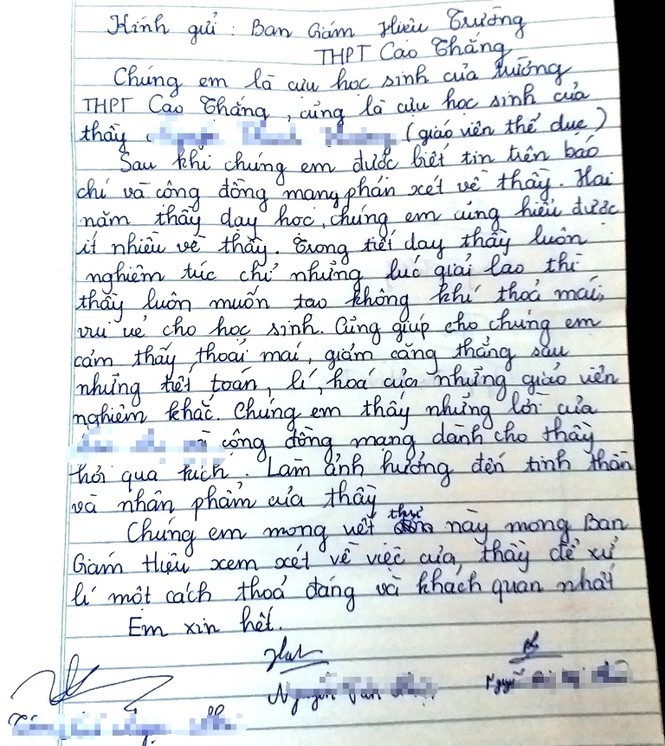 Kính gửi : Ban Giám Hiệu Trường
THPT Cao Thắng
Chúng em là cựu học sinh của trường
THPT Cao Thắng , cũng là cựu học sinh của
thầy (giáo viên thể dục)
Sau khi chúng em được biết tin trên báo
chí và cộng đồng mạng phán xét về thầy. Hai
năm thầy dạy học, chúng em cũng hiểu được
ít nhiều về thầy. Trong tiết dạy thầy luôn
nghiêm túc chỉ những lúc giải lao thì
thầy luôn muốn tạo không khí thoả mái,
vui vẻ cho học sinh. Cũng giúp cho chúng em
cảm thấy thoải mái, giảm căng thẳng sau
những tiết toán, lí, hoá của những giáo viên
nghiêm khắc. Chúng em thấy những lời của
cộng đồng mạng dành cho thầy
hơi quá khích. Làm ảnh hưởng đến tinh thần
và nhân phẩm của thầy
Chúng em mong viết thư này mong Ban
Giám Hiệu xem xét về việc của, thầy để xử
lí một cách thoả đáng và khách quan nhất
Em xin hết.
Nguyễn Văn
Nguyễn